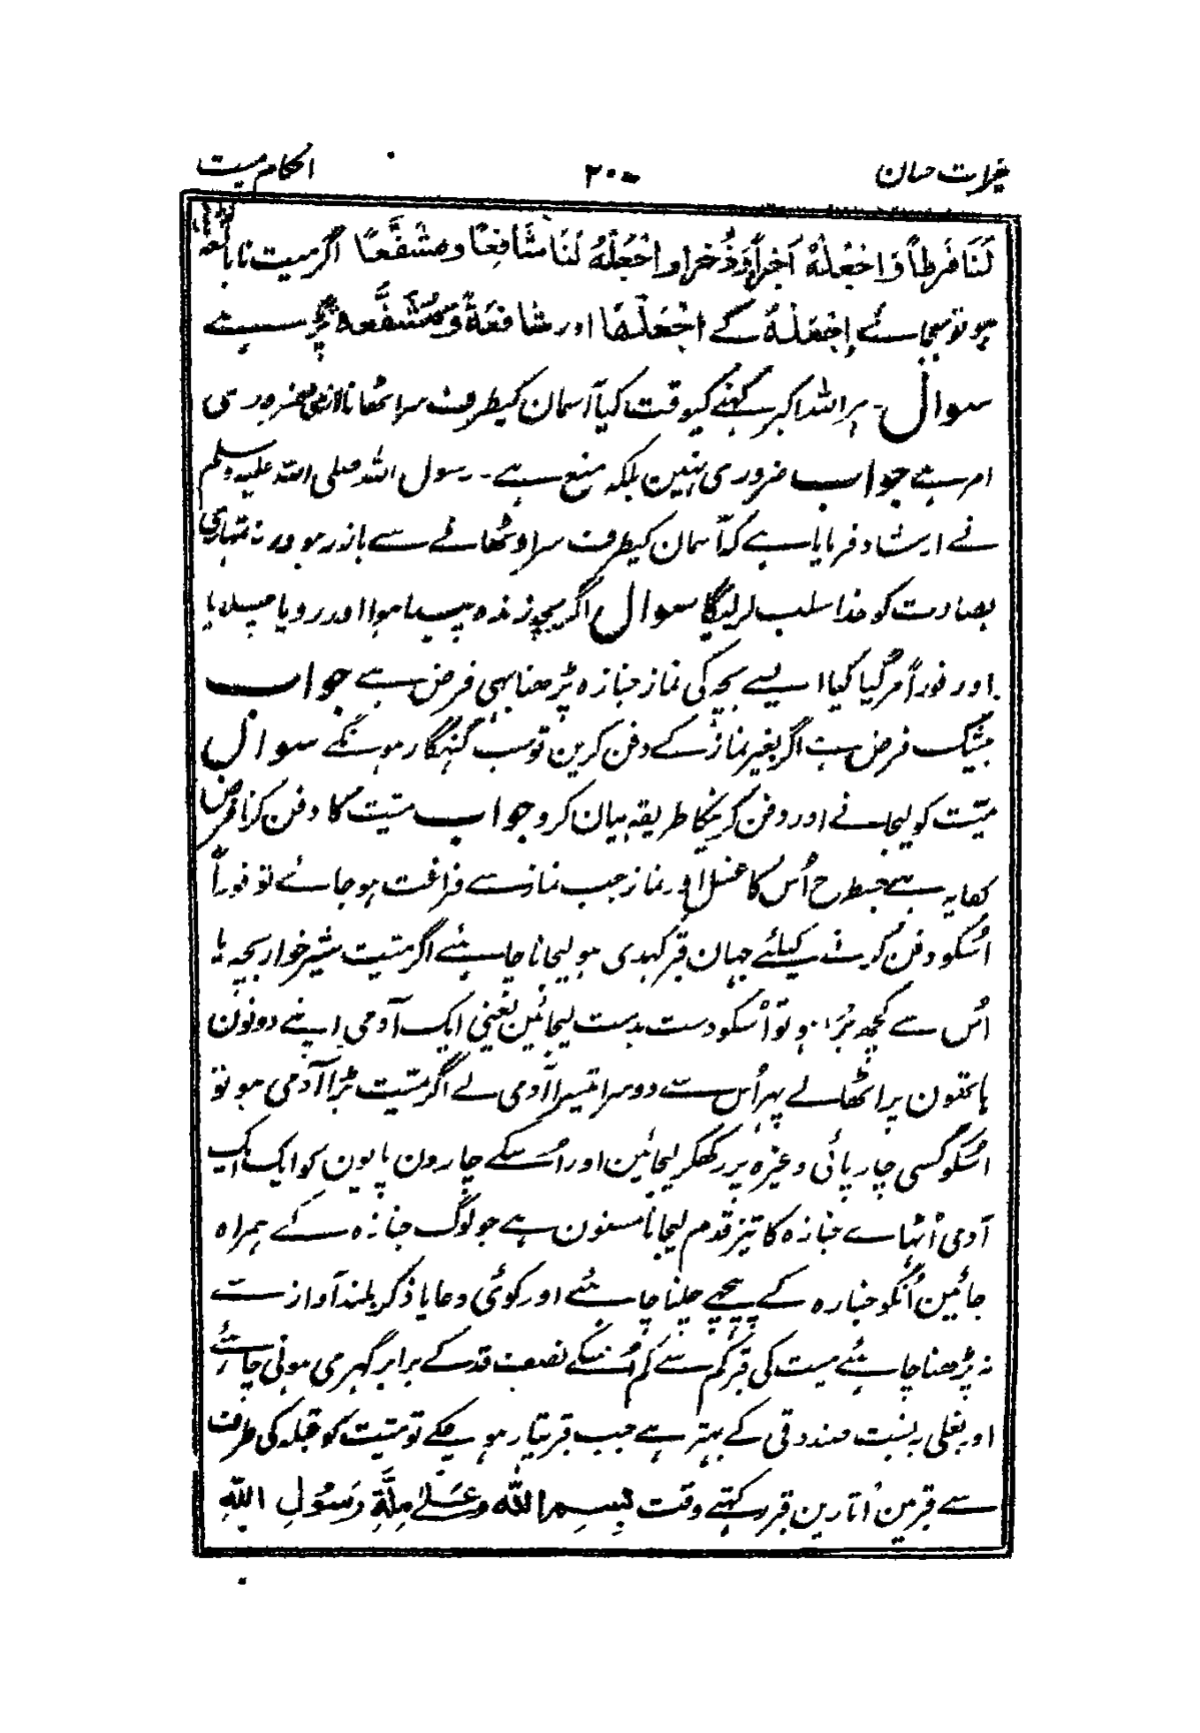 خیرات حسان ۲۰ احکام میت
لَنَا فَرَطاً وَاجْعَلْهُ اَجْراً وَّذُخْرا وَاجْعَلْهُ لَنَا شَافِعًا وَمُشَفَّعًا اگر میت نابالغہ
ہو تو بجائے اِجْعَلْهُ کے اجْعَلْهَا اور شَافِعَةً وَّمُشَفَّعه پڑہے
سوال۔ ہر اللہ اکبر کہنے کیوقت کیا آسمان کیطرف سر اٹھانا ضروری
امر ہے جواب ضروری نہین بلکہ منع ہے۔ رسول اللہ صلی اللہ علیہ وسلم
نے ارشاد فرمایا ہے کہ آسمان کیطرف سر اوٹھانے سے باز رہو ورنہ تمہاری
بصارت کو خدا سلب کرلیگا سوال اگر بچہ زندہ پیدا ہوا اور رویا چلایا
اور فوراً مر گیا کیا ایسے بچہ کی نماز جنازہ پڑھنا بہی فرض ہے جواب
بیشک فرض ہے اگر بغیر نماز کے دفن کرین تو سب گنہگار ہونگے سوال
میّت کو لیجانے اور دفن کرنیکا طریقہ بیان کرو جواب میّت کا دفن کرنا فرض
کفایہ ہے جسطرح اُس کا غسل اور نماز جب نماز سے فراغت ہو جائے تو فوراً
اُسکو دفن کرنے کیلئے جہان قبر کہدی ہو لیجانا چاہیئے اگر میّت شیر خوار بچہ یا
اُس سے کچھ بڑا ہو تو اُسکو دست بدست لیجائین یعنی ایک آدمی اپنے دونون
ہاتھون پر اٹھالے پہر اُس سے دوسرا تیسرا آدمی لے اگر میّت بڑا آدمی ہو تو
اُسکو کسی چارپائی وغیرہ پر رکھکر لیجائین اور اُسکے چارون پایون کو ایک ایک
آدمی اُٹہاے جنازہ کا تیز قدم لیجانا مسنون ہے جو لوگ جنازہ کے ہمراہ
جائین اُنکو جنازہ کے پیچہے چلنا چاہئے اور کوئی دعا یا ذکر بلند آواز سے
نہ پڑھنا چاہئے میت کی قبر کم سے کم اُسکے نصف قد کے برابر گہری ہونی چاہئے
اور بغلی بہ نسبت صندوقی کے بہتر ہے جب قبر تیار ہو چکے تو میّت کو قبلہ کی طرف
سے قبر مین اُتارین قبر رکہتے وقت بِسِمِ اللهِ وَعَلےٰ مِلَّةِ رَسُوْلِ اللّٰهِ